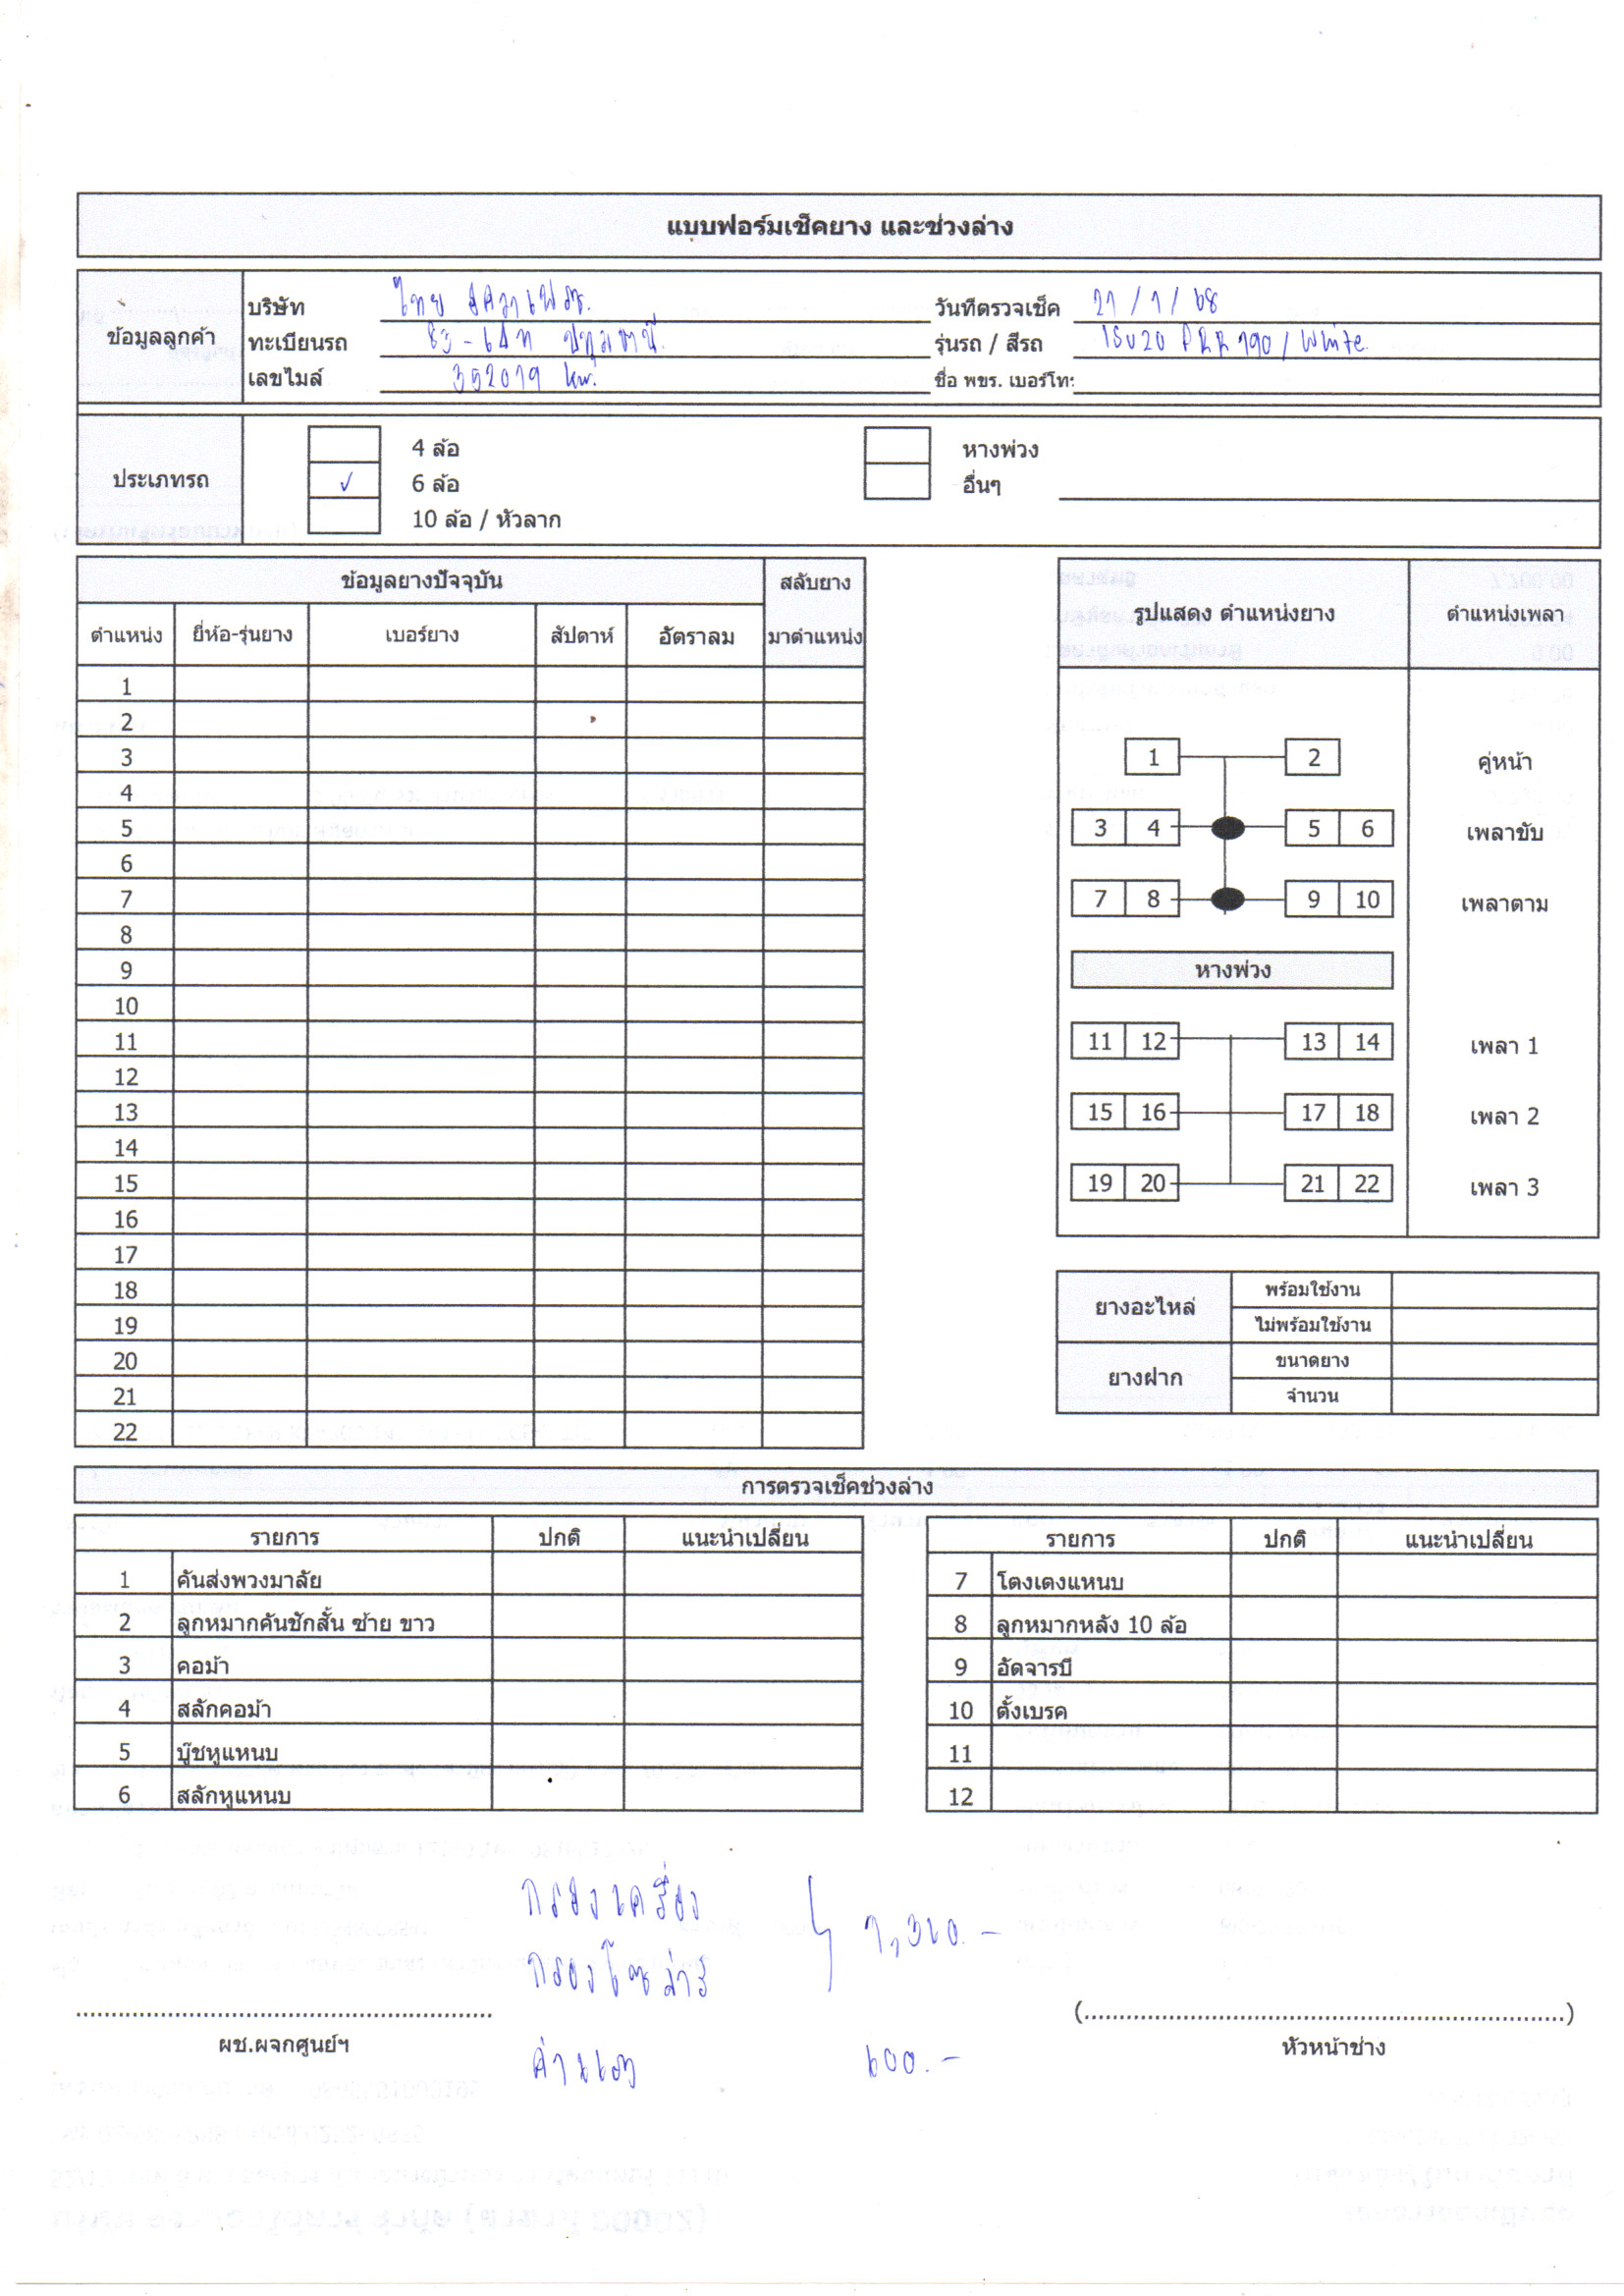 แบบฟอร์มเช็คยาง และช่วงล่าง
ข้อมูลลูกค้า
บริษัท ไทย
วันที่ตรวจเช็ค 21 / 1 / 68
ทะเบียนรถ ปทุมธานี
รุ่นรถ / สีรถ / White
เลขไมล์ 352019 km.
ชื่อ พขร. เบอร์โท:
ประเภทรถ
4 ล้อ
✓ 6 ล้อ
10 ล้อ / หัวลาก
หางพ่วง
อื่นๆ
ข้อมูลยางปัจจุบัน สลับยาง
ตำแหน่ง ยี่ห้อ-รุ่นยาง เบอร์ยาง สัปดาห์ อัตราลม มาตำแหน่ง
1
2
3
4
5
6
7
8
9
10
11
12
13
14
15
16
17
18
19
20
21
22
รูปแสดง ตำแหน่งยาง ตำแหน่งเพลา
1 2 คู่หน้า
3 4 5 6 เพลาขับ
7 8 9 10 เพลาตาม
หางพ่วง
11 12 13 14 เพลา 1
15 16 17 18 เพลา 2
19 20 21 22 เพลา 3
ยางอะไหล่ พร้อมใช้งาน
ไม่พร้อมใช้งาน
ยางฝาก ขนาดยาง
จำนวน
การตรวจเช็คช่วงล่าง
รายการ ปกติ แนะนำเปลี่ยน
1 คันส่งพวงมาลัย
2 ลูกหมากคันชักสั้น ซ้าย ขาว
3 คอม้า
4 สลักคอม้า
5 บู๊ชหูแหนบ
6 สลักหูแหนบ
รายการ ปกติ แนะนำเปลี่ยน
7 โตงเตงแหนบ
8 ลูกหมากหลัง 10 ล้อ
9 อัดจารบี
10 ตั้งเบรค
11
12
กรองเครื่อง
กรองโซล่าร์ 1,310.-
ค่าแรง 600.-
ผช.ผจกศูนย์ฯ
(..........)
หัวหน้าช่าง